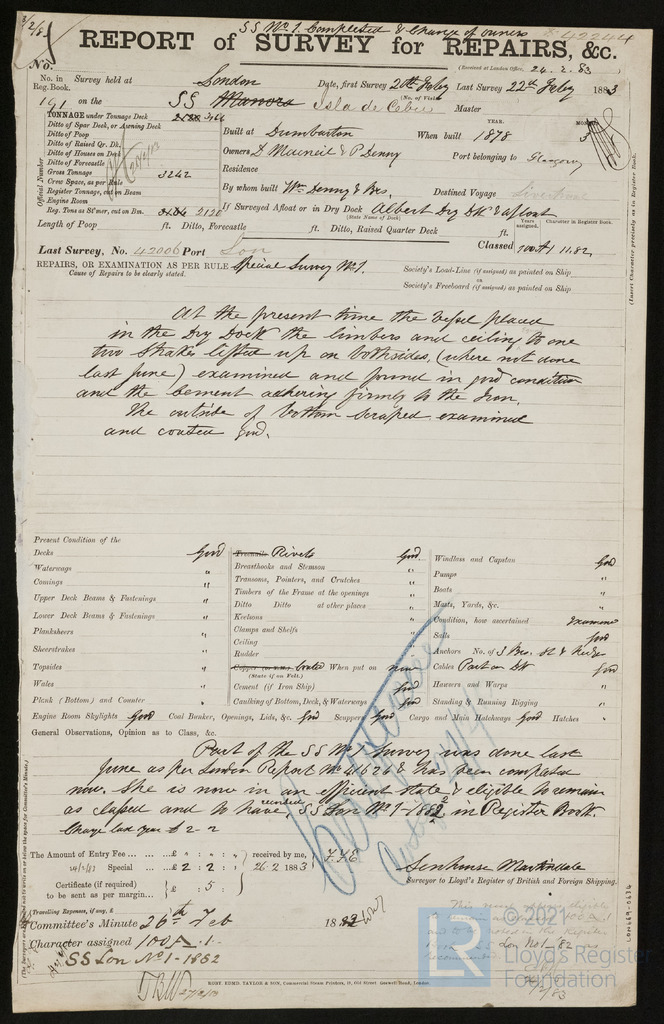 SS No 1. Completed & Change of owners
3/2/83
42244
REPORT of SURVEY for REPAIRS, &c.
No.
(Received at London Office, 24. 2. 83
No. in Reg. Book. Survey held at London Date, first Survey 20th Feby Last Survey 22nd Feby 1883
(No. of Visits
191 on the SS Manora Isla de Cebu Master
TONNAGE under Tonnage Deck
Ditto of Spar Deck, or Awning Deck
Ditto of Poop
Ditto of Raised Qr. Dk.
Ditto of Houses on Deck
Ditto of Forecastle
Gross Tonnage 3242
Crew Space, as per Rule
Register Tonnage, cut on Beam
Engine Room
Reg. Tons as St'mer, cut on Bm. 2120
Official Number
YEAR. MONTH
Built at Dumbarton When built 1878 3
Owners D Macneil & P Denny Port belonging to Glasgow
Residence
By whom built Wm Denny & Bros. Destined Voyage Liverpool
If Surveyed Afloat or in Dry Dock Albert Dry Dk & afloat
(State Name of Dock.)
Years assigned. Character in Register Book.
Length of Poop ft. Ditto, Forecastle ft. Ditto, Raised Quarter Deck ft.
Last Survey, No. 42006 Port Lon Classed 100A1 11.82
REPAIRS, OR EXAMINATION AS PER RULE Special Survey No 1.
Cause of Repairs to be clearly stated.
Society's Load-Line (if assigned) as painted on Ship
or
Society's Freeboard (if assigned) as painted on Ship
(Insert Character precisely as in Register Book.
At the present time the Vessel placed
in the Dry Dock the limbers and ceiling to one
two strakes lifted up on both sides, (where not done
last June) examined and found in good condition
and the Cement adhering firmly to the Iron.
The outside of bottom scraped examined
and coated good.
Present Condition of the
Decks Good
Waterways "
Comings "
Upper Deck Beams & Fastenings "
Lower Deck Beams & Fastenings "
Planksheers "
Sheerstrakes "
Topsides "
Wales "
Plank (Bottom) and Counter "
Treenails Rivets Good
Breasthooks and Stemson "
Transoms, Pointers, and Crutches "
Timbers of the Frame at the openings "
Ditto Ditto at other places "
Keelsons "
Clamps and Shelfs "
Ceiling "
Rudder "
Coated When put on now
(State if on Felt.)
Cement (if Iron Ship) Good
Caulking of Bottom, Deck, & Waterways Good
Windlass and Capstan Good
Pumps "
Boats "
Masts, Yards, &c. "
Condition, how ascertained Examined
Sails Good
Anchors No. of 3 Brs. St & Kedge
Cables Part on Dk Good
Hawsers and Warps "
Standing & Running Rigging "
Engine Room Skylights Good Coal Bunker, Openings, Lids, &c. Good Scuppers Good Cargo and Main Hatchways Good Hatches "
General Observations, Opinion as to Class, &c.
Part of the SS No 1 Survey was done last
June as per London Report No 41626 & has been completed
now. She is now in an efficient state & eligible to remain
as classed and to have recorded SS Lon No 1-1882 in Register Book.
Charge last year £ 2-2
The Amount of Entry Fee ... £ : : received by me,
Special ... £ 2 : 2 : 26.2.1883
Certificate (if required) £ : 5 :
to be sent as per margin...
Senhouse Martindale
Surveyor to Lloyd's Register of British and Foreign Shipping.
(Travelling Expenses, if any, £
Committee's Minute 26th Feb 18
Character assigned 100A.1.
SS Lon No 1-1882
27/2/83
RUBY, EDMD. TAYLOR & SON, Commercial Steam Printers, 19, Old Street (Goswell Road), London.
LON669-0636
LR
© 2021
Lloyd's Register
Foundation